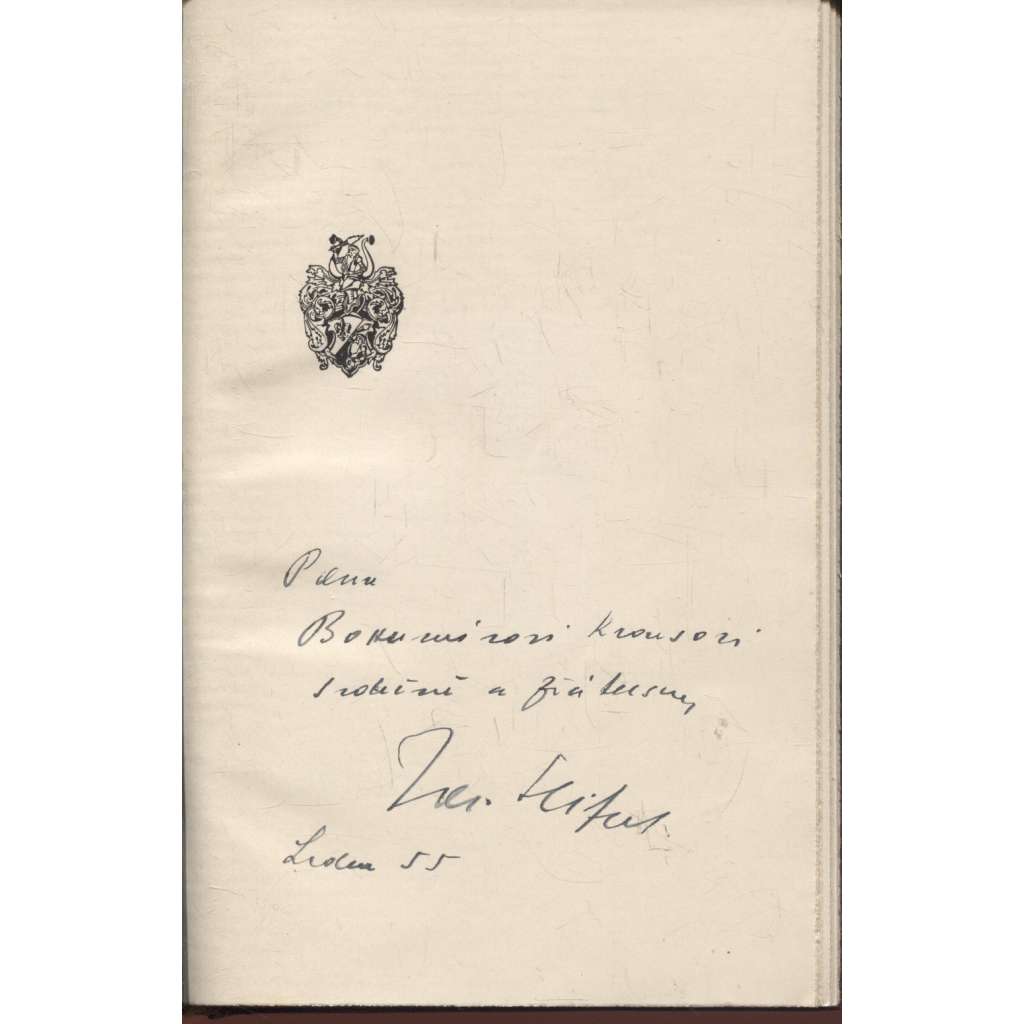 Panu
Bohumírovi Krausovi
srdečně a přátelsky
Jar. Seifert
Leden 55